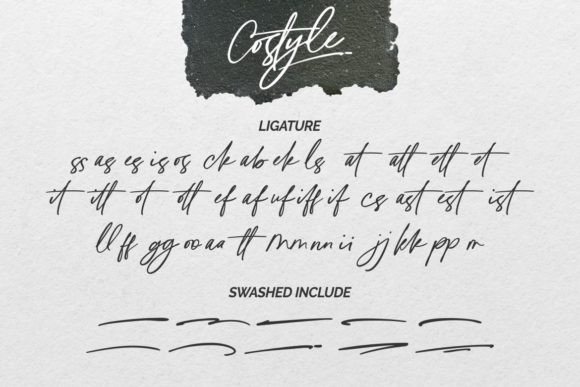 Costyle
LIGATURE
ss as es is os ck ab ek ls at att ett et
it itt ot ott ef af uf iff if cs ast est ist
ll ff gg oo aa tt mm nn ii jj kk pp rr
SWASHED INCLUDE